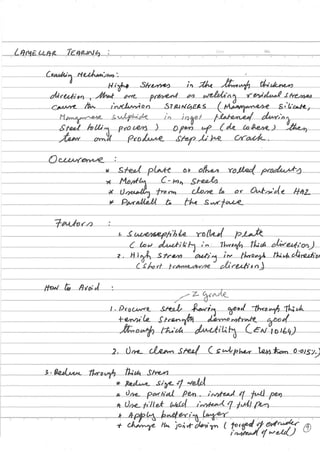 LAMELLAR TEARING :
Cracking Mechanism :
High Stresses in the through thickness
direction, that are present as welding residual stresses
cause the inclusion STRINGERS (Manganese Silicate,
Manganese Sulphide in ingot flatened during
Steel rolling process) open up (de cohere) then
tear and produce step like crack.
Occurence :
* Steel plate or other rolled products
* Mostly C-mn Steels
* Usually from close to or outside HAZ
* Parallell to the surface
Factors :
1. Susceptible rolled plate
(low ductility in Through Thick direction)
2. High stress acting in through thick direction
(Short transverse direction)
How to Avoid :
Z grade
1. Procure steel having good Through Thick
tensile strength demonstrate good
through thick ductility (EN 10164)
2. Use clean steel (sulpher less than 0.015%)
3. Reduce Through Thick Stress
* Reduce size of weld
* Use partial pen. instead of full pen
* Use fillet weld instead of full pen
* Apply buttering layer
* change the joint design (forged or extruder
instead of weld)